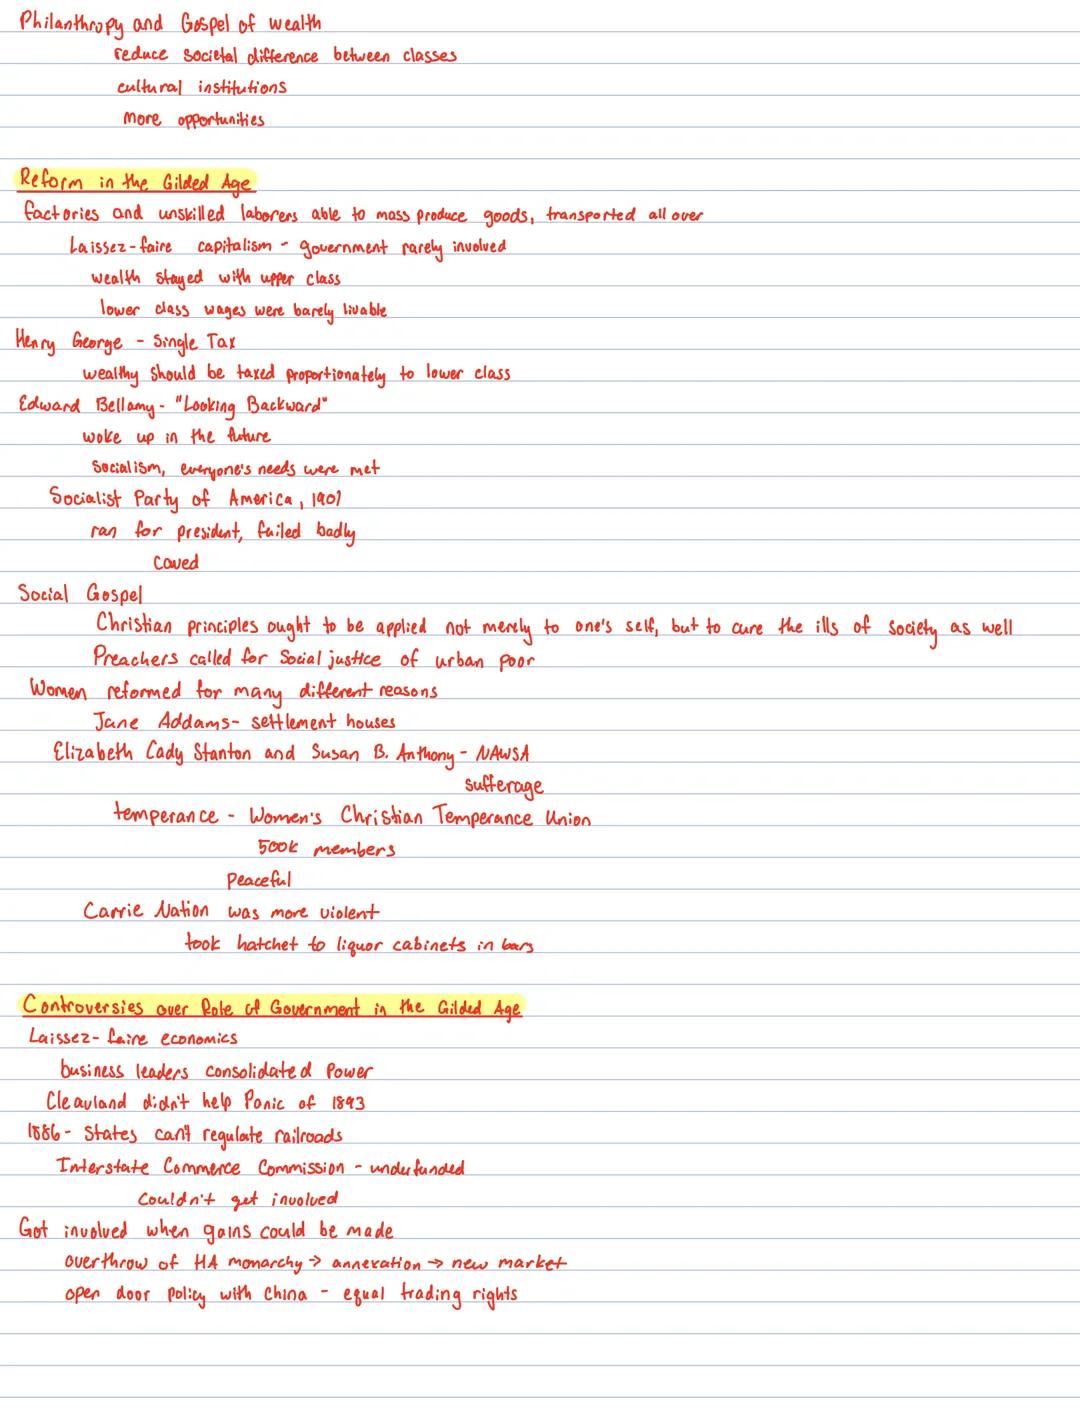 Philanthropy and Gospel of wealth
reduce societal difference between classes
cultural institutions
more opportunities
Reform in the Gilded Age
factories and unskilled laborers able to mass produce goods, transported all over
Laissez-faire capitalism - government rarely involved
wealth stayed with upper class
lower class wages were barely livable
Henry George - Single Tax
wealthy should be taxed proportionately to lower class
Edward Bellamy - "Looking Backward"
woke up in the future
Socialism, everyone's needs were met
Socialist Party of America, 1901
ran for president, failed badly
Social Gospel
Christian principles ought to be applied not merely to one's self, but to cure the ills of society as well
Preachers called for Social justice of urban poor
Women reformed for many different reasons
Jane Addams - settlement houses
Elizabeth Cady Stanton and Susan B. Anthony - NAWSA
sufferage
temperance - Women's Christian Temperance Union
500k members
Peaceful
Carrie Nation was more violent
took hatchet to liquor cabinets in bars
Controversies over Role of Government in the Gilded Age
Laissez-faire economics
business leaders consolidated Power
Cleavland didn't help Panic of 1893
1886 - States can't regulate railroads
Interstate Commerce Commission - underfunded
Couldn't get involved
Got involved when gains could be made
overthrow of HA monarchy → annexation → new market
open door policy with China - equal trading rights